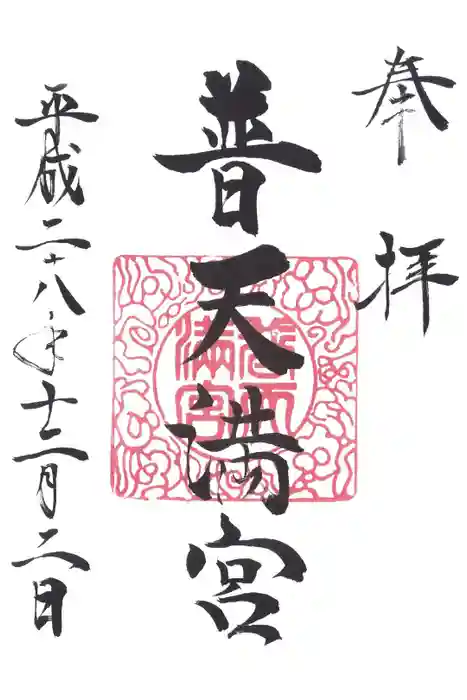 奉拝
普天満宮
普天
滿宮
平成二十八年十二月二日